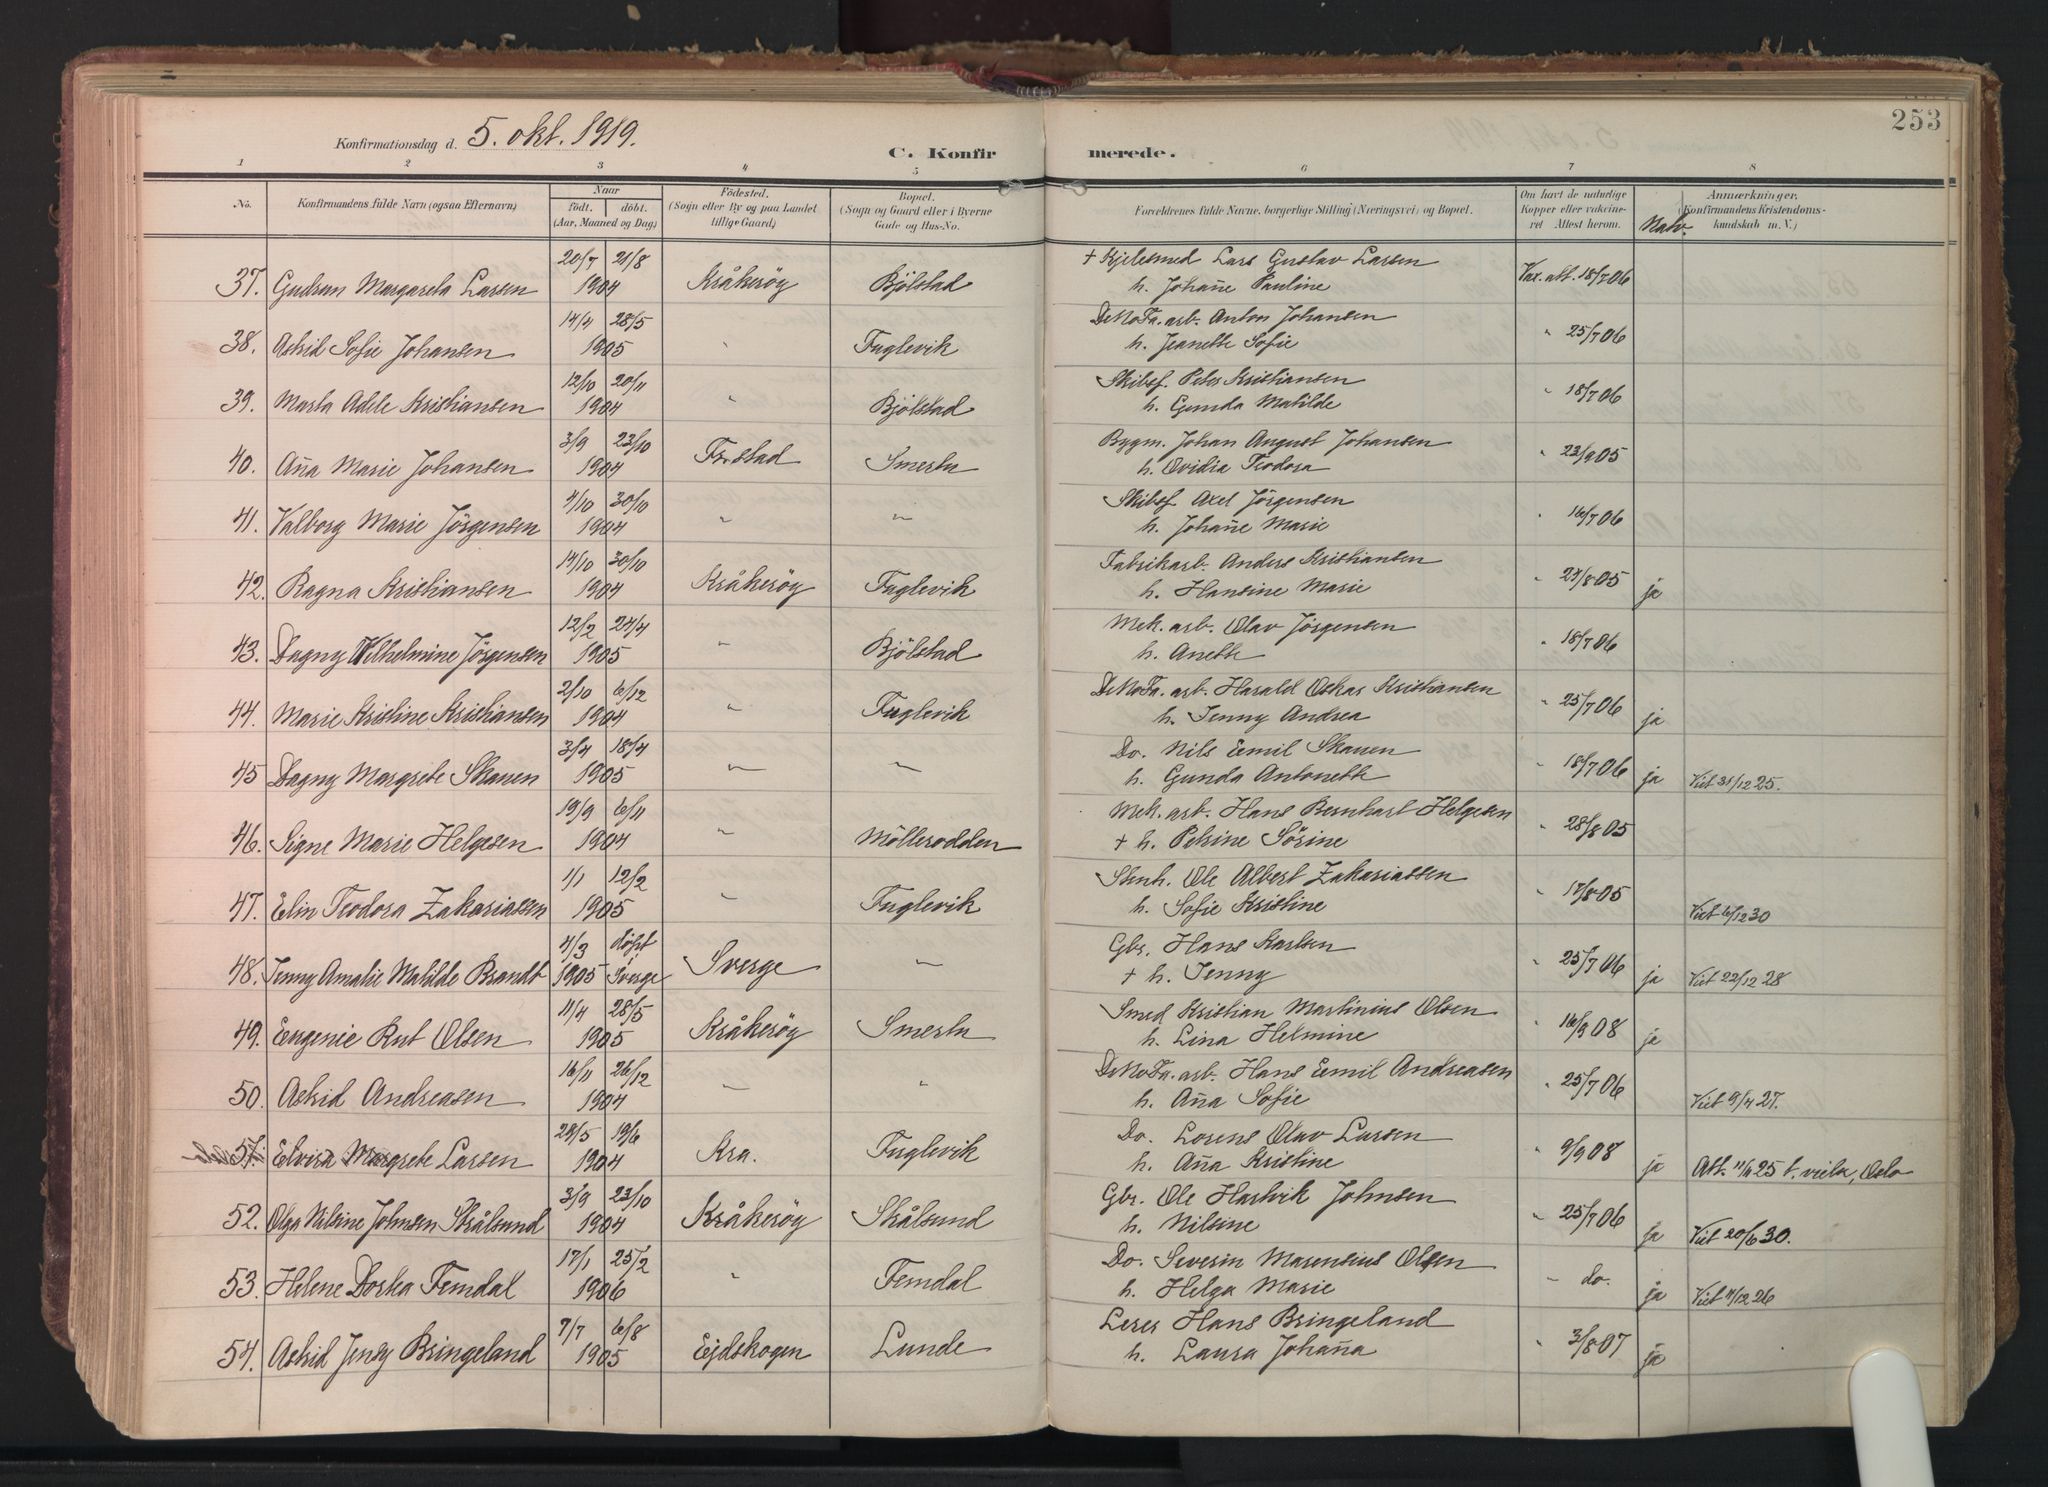 253
Konfirmationsdag d. 5. okt. 1919.
C. Konfirmerede.
1 2 3 4 5 6 7 8
No. Konfirmandens fulde Navn (ogsaa Efternavn) Naar født. døbt. (Aar, Maaned og Dag) Fødested. (Sogn eller By og paa Landet tillige Gaard) Bopæl. (Sogn og Gaard eller i Byerne Gade og Hus-No. Forældrenes fulde Navne, borgerlige Stilling (Næringsvei) og Bopæl. Om havt de naturlige Kopper eller vakcineret Attest herom. Natv. Anmærkninger. (Konfirmandens Kristendomskundskab m. V.)
20/7 21/8 + Kjelesmed Lars Gustav Larsen
37. Gudrun Margareta Larsen 1904 Kråkerøy Bjölstad h. Johan̄e Pauline Vax. att. 18/7 06
14/4 28/5 DeNoFa. arb. Anton Johansen
38. Astrid Sofie Johansen 1905 " Fuglevik h. Jeanette Sofie " 25/7 06
12/10 20/11 Skibsf. Peter Kristiansen
39. Marta Adele Kristiansen 1904 " Bjölstad h. Gunda Matilde " 18/7 06
3/9 23/10 Bygm. Johan August Johansen
40. An̄a Marie Johansen 1904 Fr.stad Smertu h. Ovidia Teodora " 23/9 05
4/10 30/10 Skibsf. Axel Jörgensen
41. Valborg Marie Jörgensen 1904 " " h. Johan̄e Marie " 16/7 06
14/10 30/10 Fabrikarb. Anders Kristiansen
42. Ragna Kristiansen 1904 Kråkerøy Fuglevik h. Hansine Marie " 24/8 05 ja
12/2 24/4 Mek. arb. Olav Jörgensen
43. Dagny Wilhelmine Jörgensen 1905 " Bjölstad h. Anette " 18/7 06
2/10 6/12 DeNoFa. arb. Harald Oskar Kristiansen
44. Marie Kristine Kristiansen 1904 " Fuglevik h. Jenny Andrea " 25/7 06 ja
3/4 18/4 Do. Nils Emil Skauen
45 Dagny Margrete Skauen 1905 " " h. Gunda Antonette " 18/7 06 ja Viet 31/12 25.
19/9 6/11 Mek. arb. Hans Bernhart Helgesen
46. Signe Marie Helgesen 1904 " Möllerodden + h. Petrine Sörine " 28/8 05
1/1 12/2 Stenh. Ole Albert Zakariassen
47. Elin Teodora Zakariassen 1905 " Fuglevik h. Sofie Kristine " 17/8 05 Viet 6/12 30
4/3 döpt Gbr. Hans Karlsen
48. Jenny Amalie Matilde Brandt 1905 Sverge Sverge " + h. Jenny " 25/7 06 ja Viet 22/12 28
11/4 28/5 Smed Kristian Martinius Olsen
49. Eugenie Rut Olsen 1905 Kråkerøy Smertu h. Lina Helmine " 16/9 08 ja
16/11 26/12 DeNoFa. arb. Hans Emil Andreasen
50. Astrid Andreasen 1904 " " h. An̄a Sofie " 25/7 06 Viet 9/4 27.
29/5 19/6 Do. Lorens Olav Larsen
51. Elvira Margrete Larsen 1904 Kra. Fuglevik h. An̄a Kristine " 9/9 08 ja Att. 11/6 25 t. vielse, Oslo
3/9 23/10 Gbr. Ole Hartvik Johnsen
52. Olga Nilsine Johnsen Skålsund 1904 Kråkerøy Skålsund h. Nilsine " 25/7 06 ja Viet 20/6 30.
17/1 25/2 Do. Severin Marensius Olsen
53. Helene Dortea Femdal 1906 " Femdal h. Helga Marie " do. ja Viet 11/12 26
7/7 6/8 Lerer Hans Bringeland
54. Astrid Jensy Bringeland 1905 Ejdskogen Lunde h. Laura Johan̄a " 3/8 07 ja